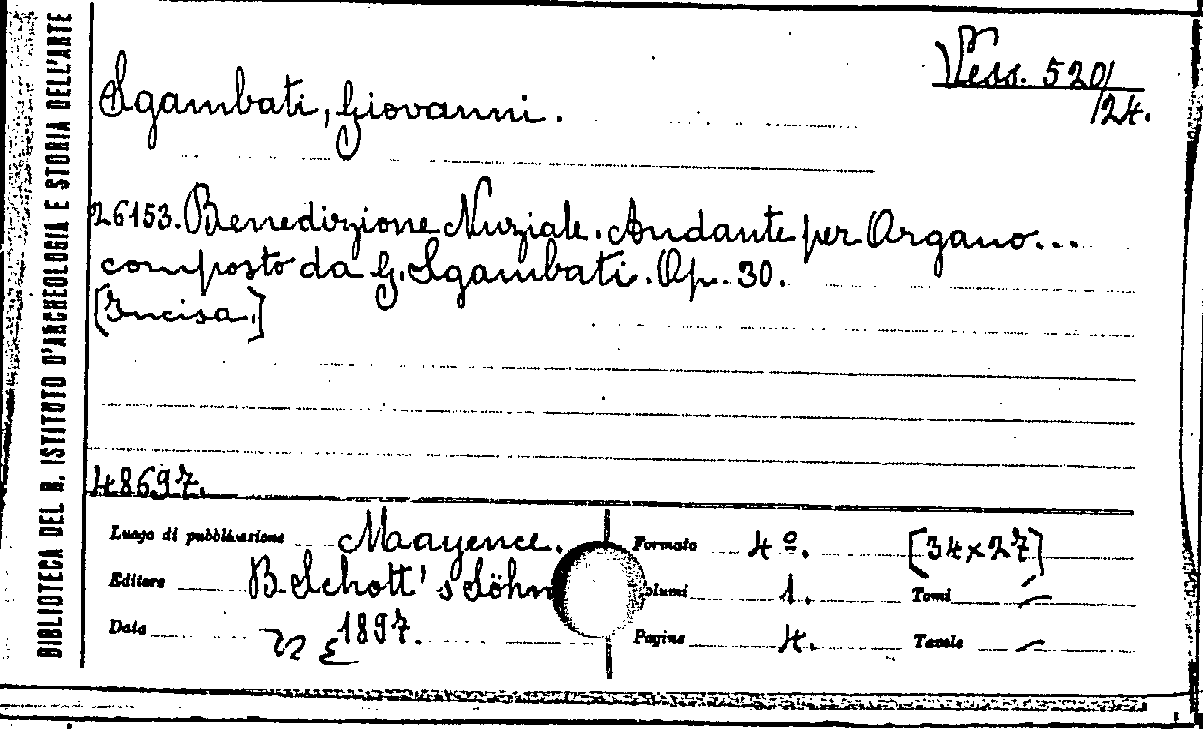 BIBLIOTECA DEL R. ISTITUTO D'ARCHEOLOGIA E STORIA DELL'ARTE
Vess. 520/
/24.
Sgambati, Giovanni.
26153. Benedizione Nuziale. Andante per Organo...
composto da G. Sgambati. Op. 30.
[Incisa.]
48697.
Luogo di pubblicazione Maayence.
Editore B. Schott's Söhn
Data 1897.
Formato 4º. [34x27]
olumi 1. Tomi –
Pagine 4. Tavole –